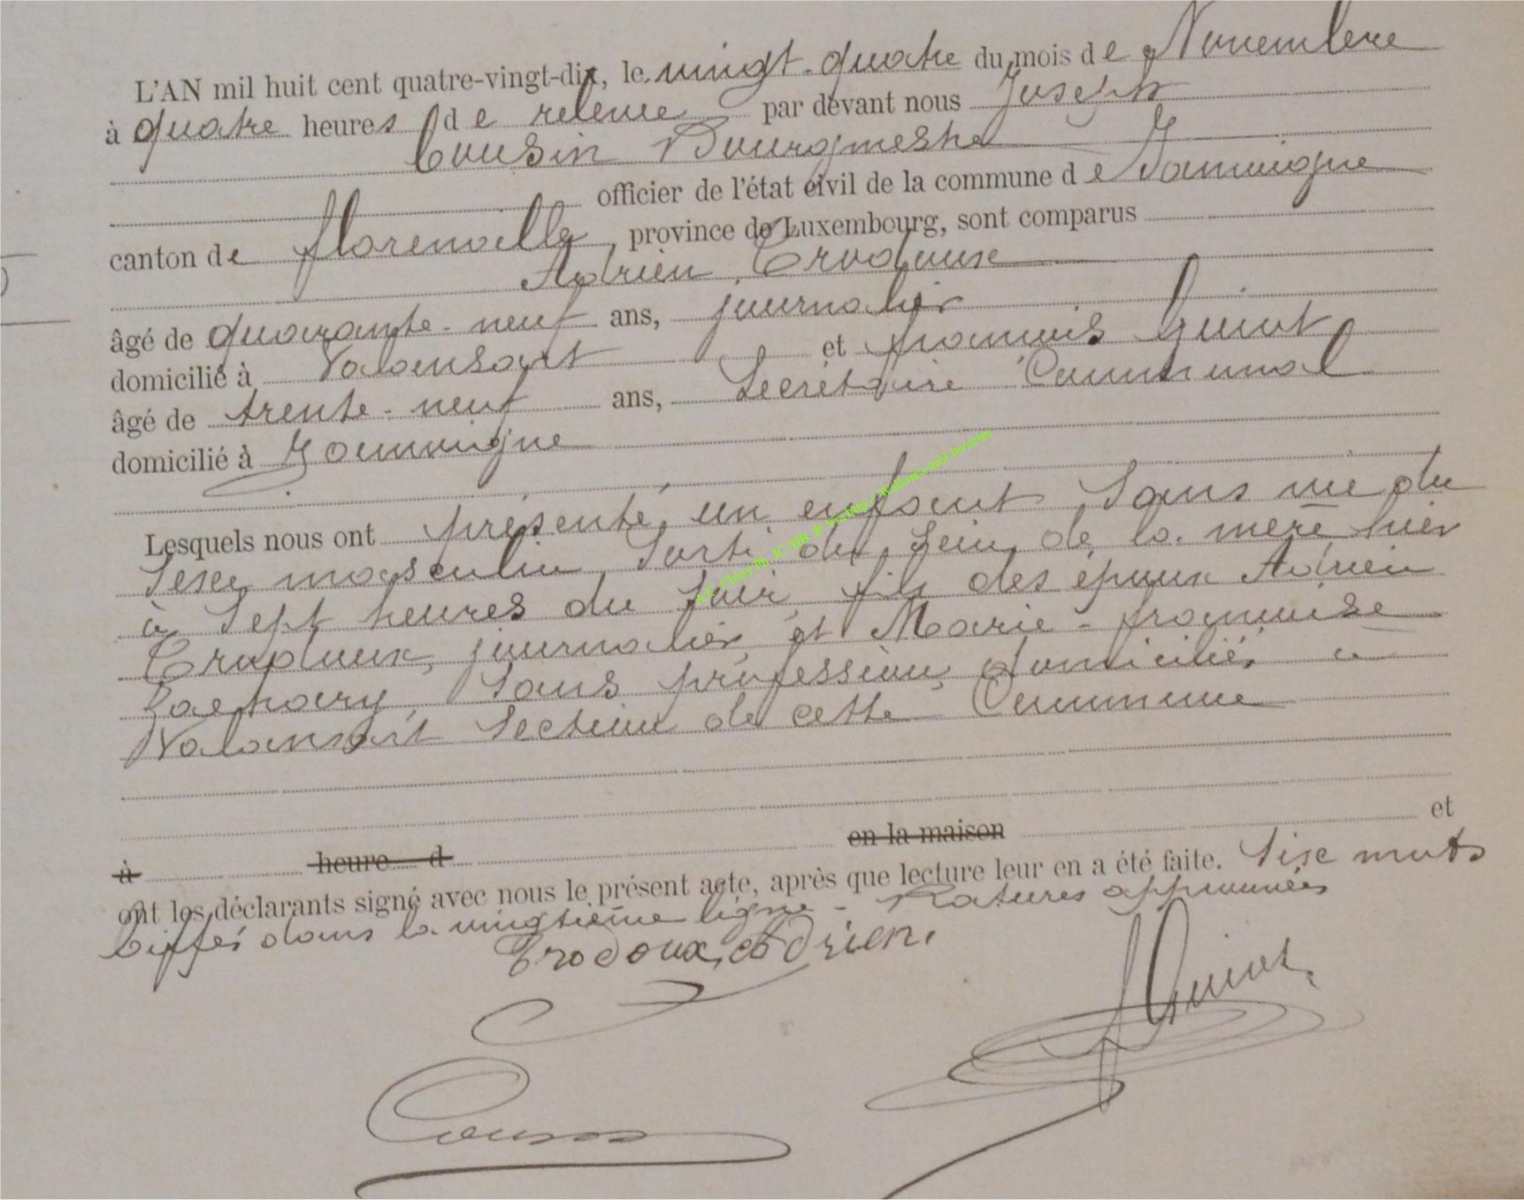 L'AN mil huit cent quatre-vingt-dix, le vingt-quatre du mois de Novembre
à quatre heures de relevée par devant nous Joseph
Cousin Bourgmestre
officier de l'état civil de la commune de Jamoigne
canton de florenville, province de Luxembourg, sont comparus
Adrien Crodoux
âgé de quarante-neuf ans, journalier
domicilié à Valansart et françois Guiot
âgé de trente-neuf ans, Secrétaire Communal
domicilié à Jamoigne
Lesquels nous ont présenté un enfant Sans vie du
Sexe masculin Sorti du Sein de la mère hier
à Sept heures du Soir, fils des époux Adrien
Crodoux, journalier, et Marie-françoise
Sans profession, domiciliés à
Valansart Section de cette Commune
à heure d en la maison et
ont les déclarants signé avec nous le présent acte, après que lecture leur en a été faite. Sixe mots
biffés dans la vingtième ligne - Ratures approuvées
Crodoux, Adrien.
Guiot.
Cousin